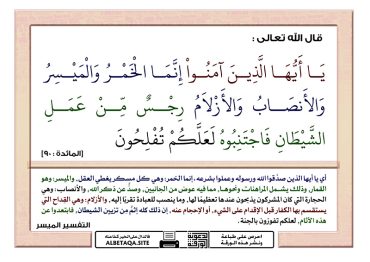 قال الله تعالى :
يَا أَيُّهَا الَّذِينَ آمَنُواْ إِنَّمَا الْخَمْرُ وَالْمَيْسِرُ
وَالأَنصَابُ وَالأَزْلاَمُ رِجْسٌ مِّنْ عَمَلِ
الشَّيْطَانِ فَاجْتَنِبُوهُ لَعَلَّكُمْ تُفْلِحُونَ
[المائدة : ٩٠]
أي يا أيها الذين صدَّقوا الله ورسوله وعملوا بشرعه ، إنما الخمر: وهي كل مسكر يغطي العقل، والميسر: وهو
القمار، وذلك يشمل المراهنات ونحوها، مما فيه عوض من الجانبين، وصدٌّ عن ذكر الله ، والأنصاب : وهي
الحجارة التي كان المشركون يذبحون عندها تعظيمًا لها، وما ينصب للعبادة تقربًا إليه ، والأزلام: وهي القِداح التي
يستقسم بها الكفار قبل الإقدام على الشيء، أو الإحجام عنه ، إن ذلك كله إثمٌ من تزيين الشيطان، فابتعدوا عن
هذه الآثام، لعلكم تفوزون بالجنة.
التفسير الميسر
ALBETAQA.SITE
احرص على طباعة
ونشر هذه الورقة